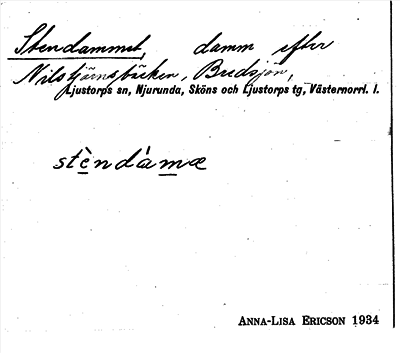 Stendammet, damm efter
Nilstjärnsbäcken, Bredsjön,
Ljustorps sn, Njurunda, Sköns och Ljustorps tg, Västernorrl. l.
stèndámæ
ANNA-LISA ERICSON 1934